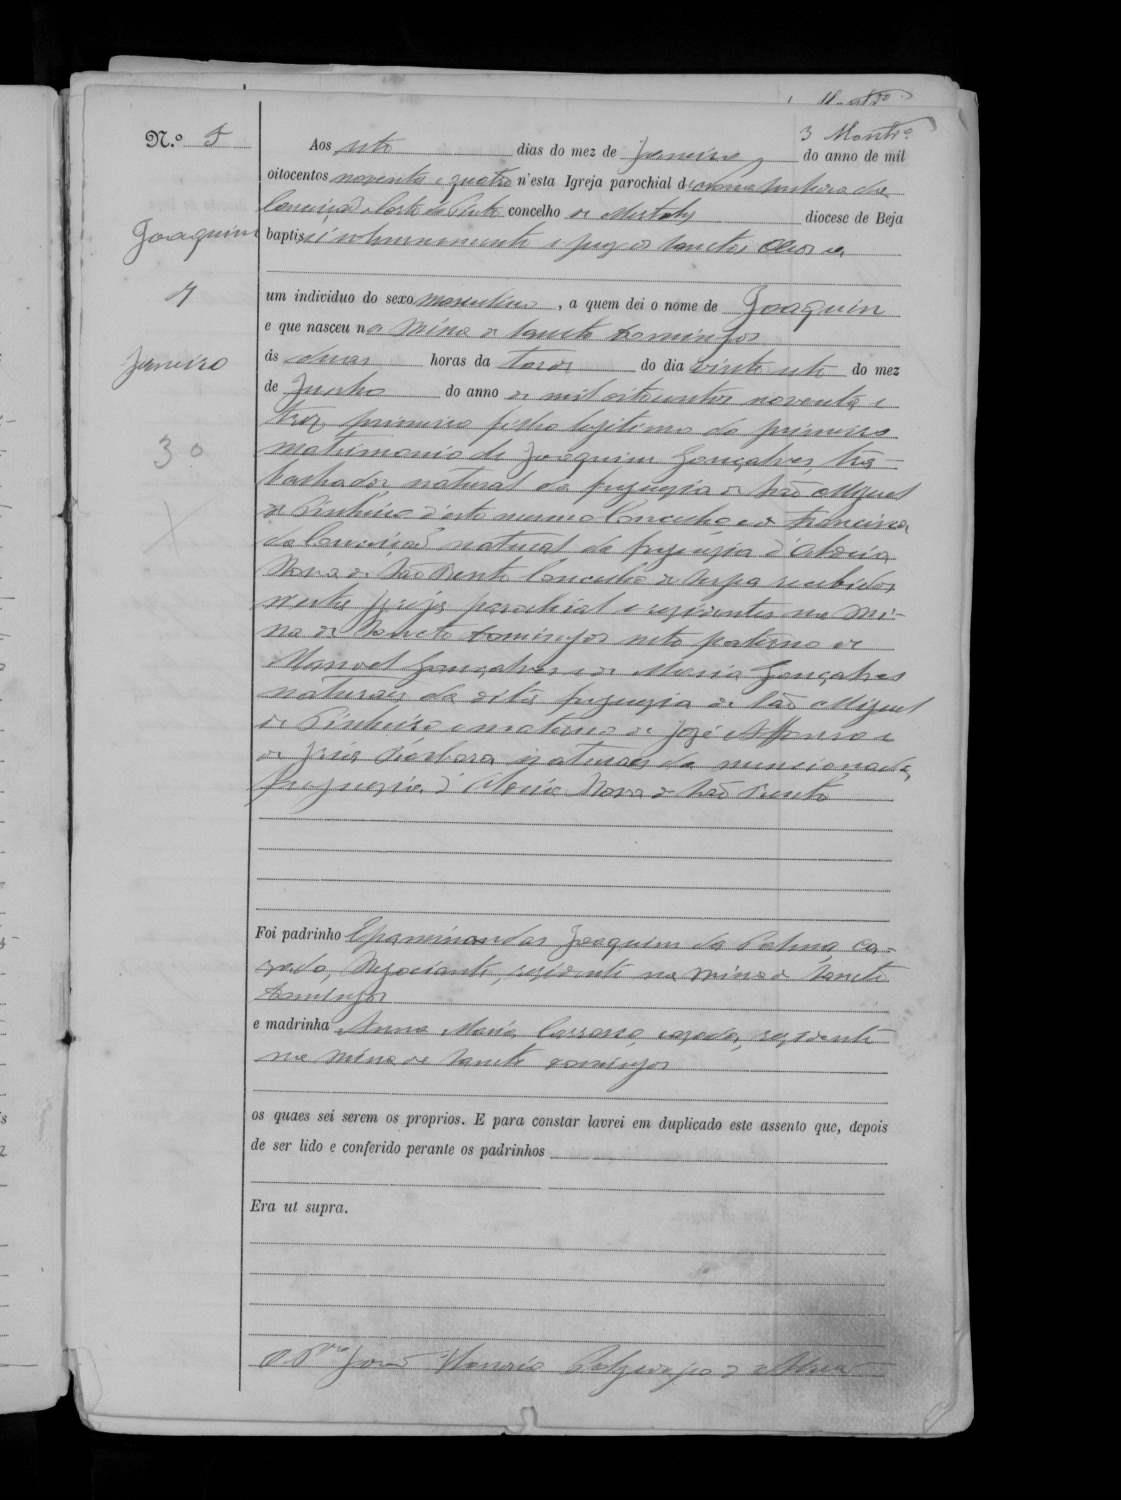 3 Montr.º
N.º 5
Aos sete dias do mez de Janeiro, do anno de mil
oitocentos noventa e quatro n'esta Igreja parochial de Nossa Senhora da
Conceição Corte do Pinto concelho de Mertola diocese de Beja
Joaquim
baptisei solemnemente e puz os Sanctos Oleos a
7
um individuo do sexo masculino, a quem dei o nome de Joaquim
e que nasceu na Mina de Sancto Domingos
Janeiro
ás duas horas da tarde do dia vinte sete do mez
de Junho do anno de mil oitocentos noventa e
trez, primeiro filho legitimo do primeiro
30
matrimonio de Joaquim Gonçalves, tra-
balhador natural da freguezia de São Miguel
de Pinheiro d'este mesmo Concelho e de Francisca
da Conceição natural da freguezia d'Aldeia
Nova de São Bento Concelho de Serpa recebidos
n'esta Igreja parochial e residentes na Mi-
na de Sancto Domingos neto paterno de
Manoel Gonçalves e de Maria Gonçalves
naturaes da dita freguezia de São Miguel
de Pinheiro e materno de José Affonso e
de Barbara naturaes da mencionada
freguezia d'Aldeia Nova de São Bento
Foi padrinho Epaminondas Joaquim da Palma, ca-
zado, Negociante, residente na Mina de Sancto
Domingos
e madrinha Anna Maria, cazada, residente
na Mina de Sancto Domingos
os quaes sei serem os proprios. E para constar lavrei em duplicado este assento que, depois
de ser lido e conferido perante os padrinhos
Era ut supra.
O P.